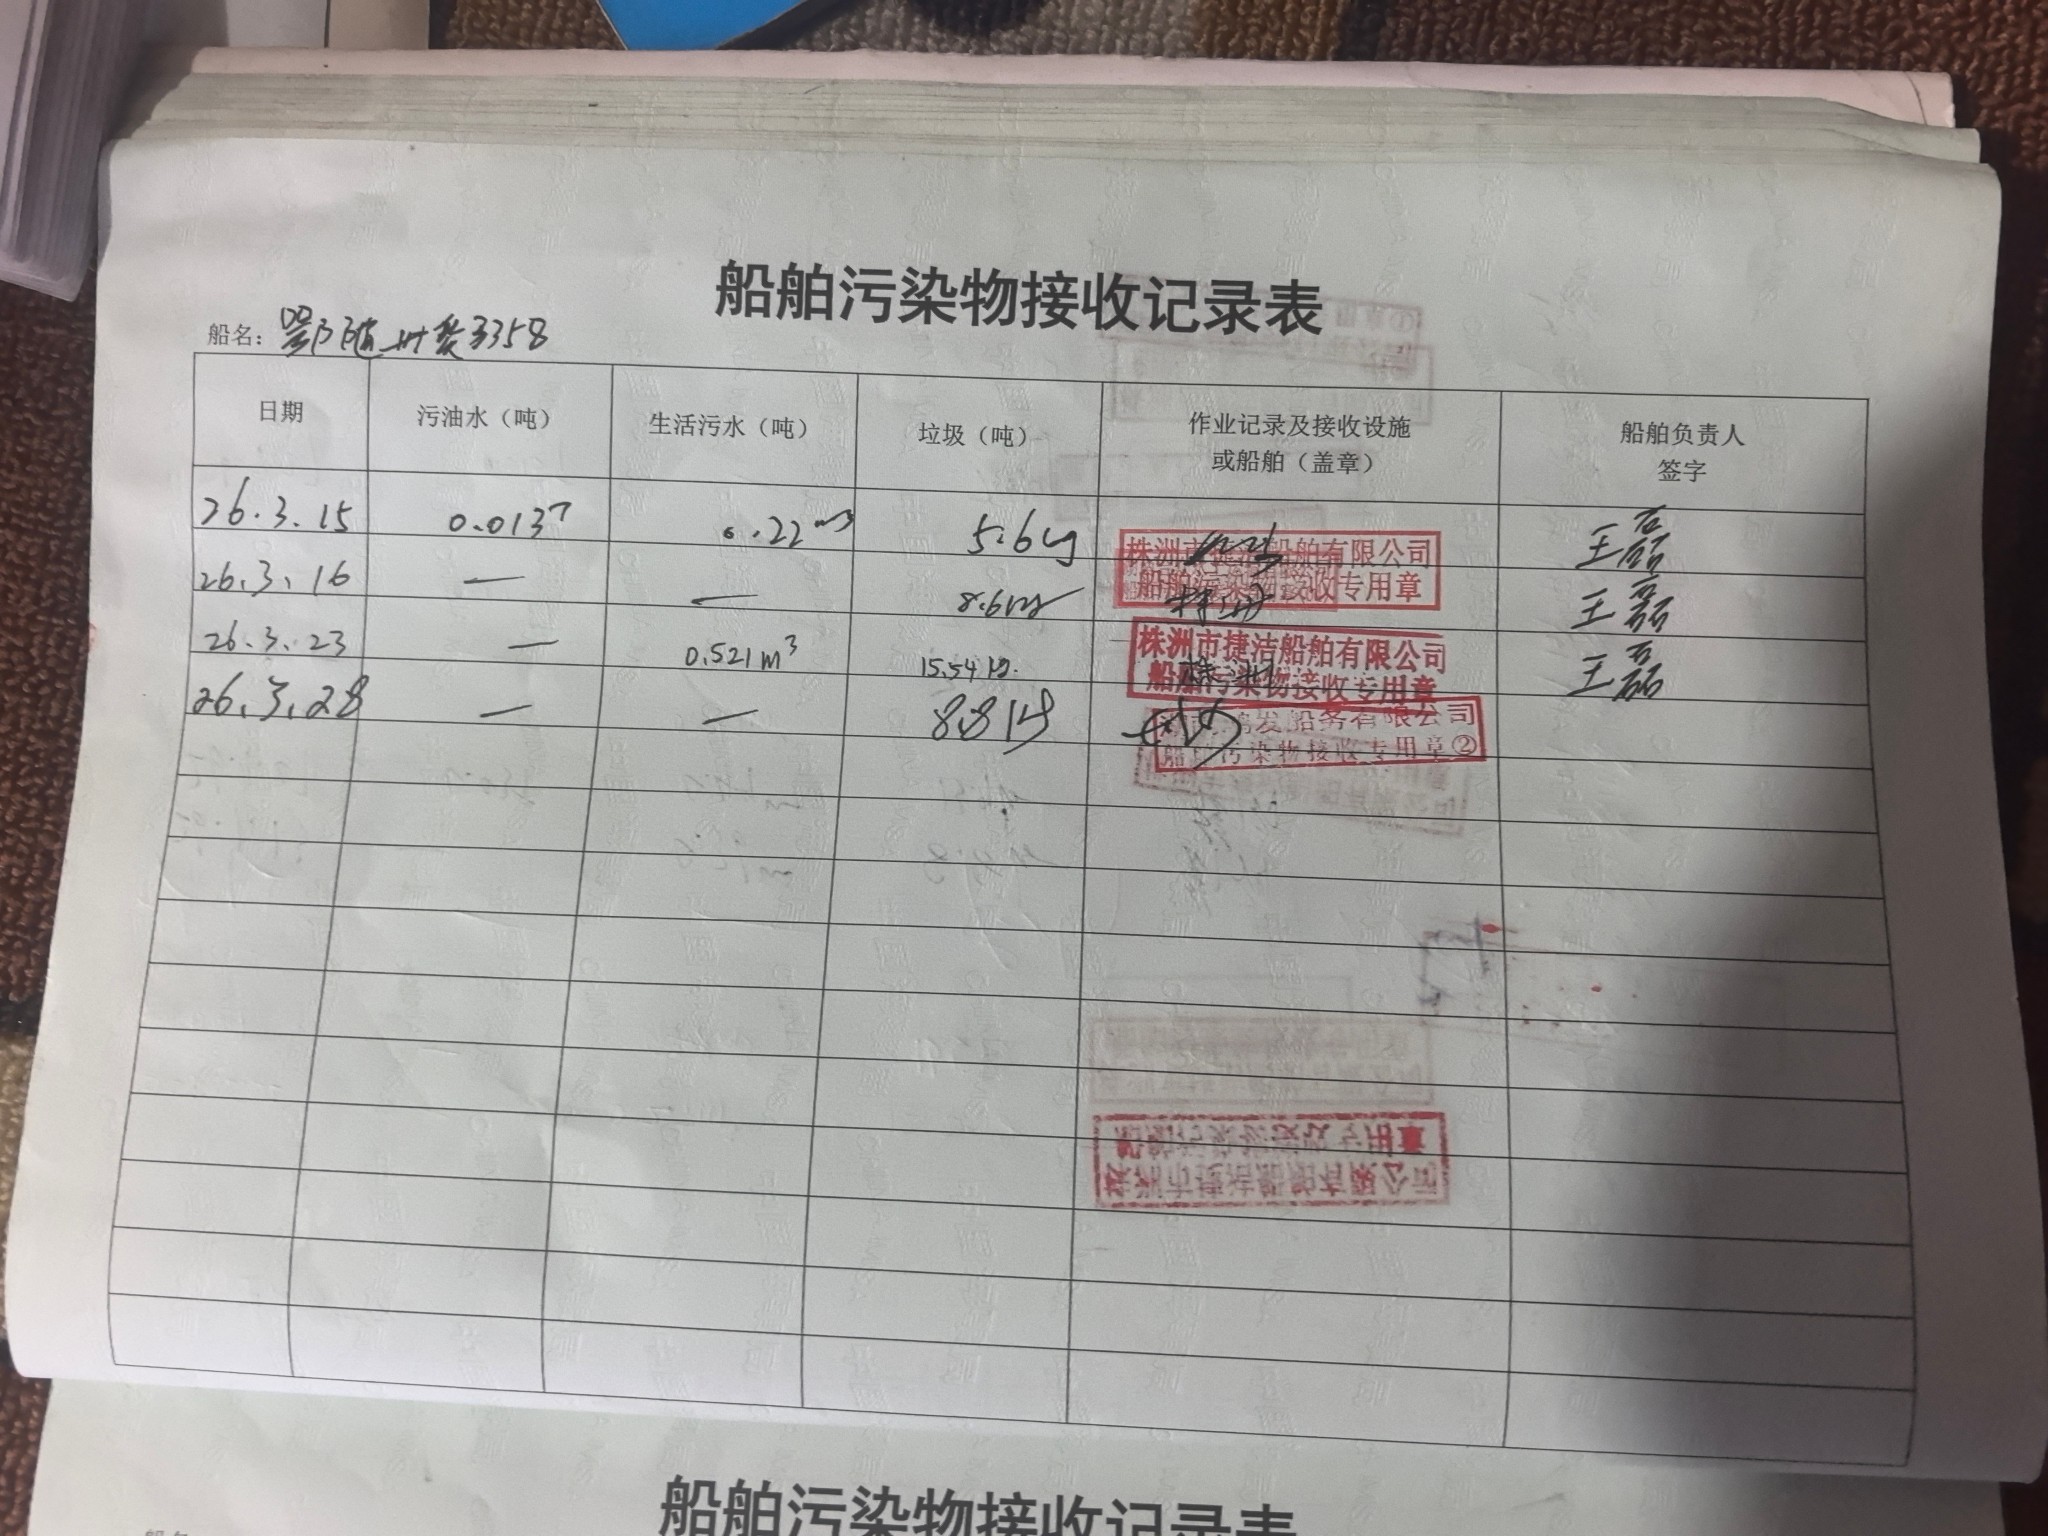 船舶污染物接收记录表
船名：鄂随州货3358
日期 污油水（吨） 生活污水（吨） 垃圾（吨） 作业记录及接收设施或船舶（盖章） 船舶负责人签字
26.3.15 0.013T 0.22m³ 5.6kg 王磊
株洲市捷洁船舶有限公司
船舶污染物接收专用章
26.3.16 — — 8.6kg 王磊
26.3.23 — 0.521m³ 15.54kg. 株洲 王磊
株洲市捷洁船舶有限公司
船舶污染物接收专用章
26.3.28 — — 8.8kg
发船务有限公司
船舶污染物接收专用章②
船舶污染物接收专用章
株洲市捷洁船舶有限公司
船舶污染物接收记录表
船名